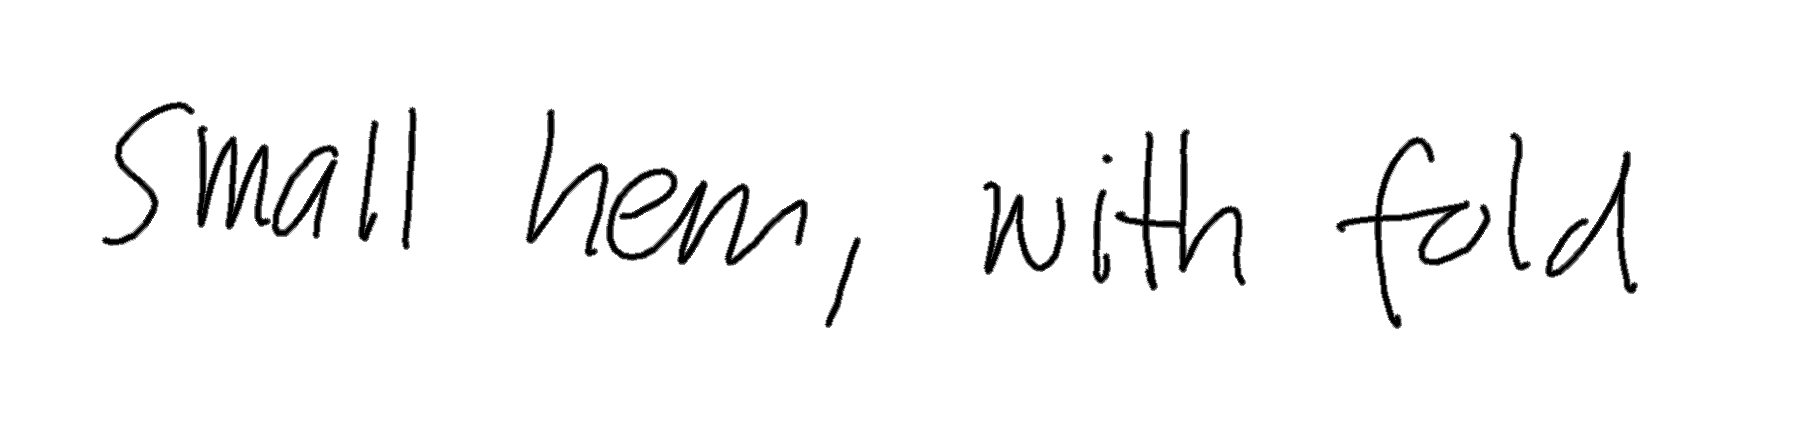 small hem, with fold